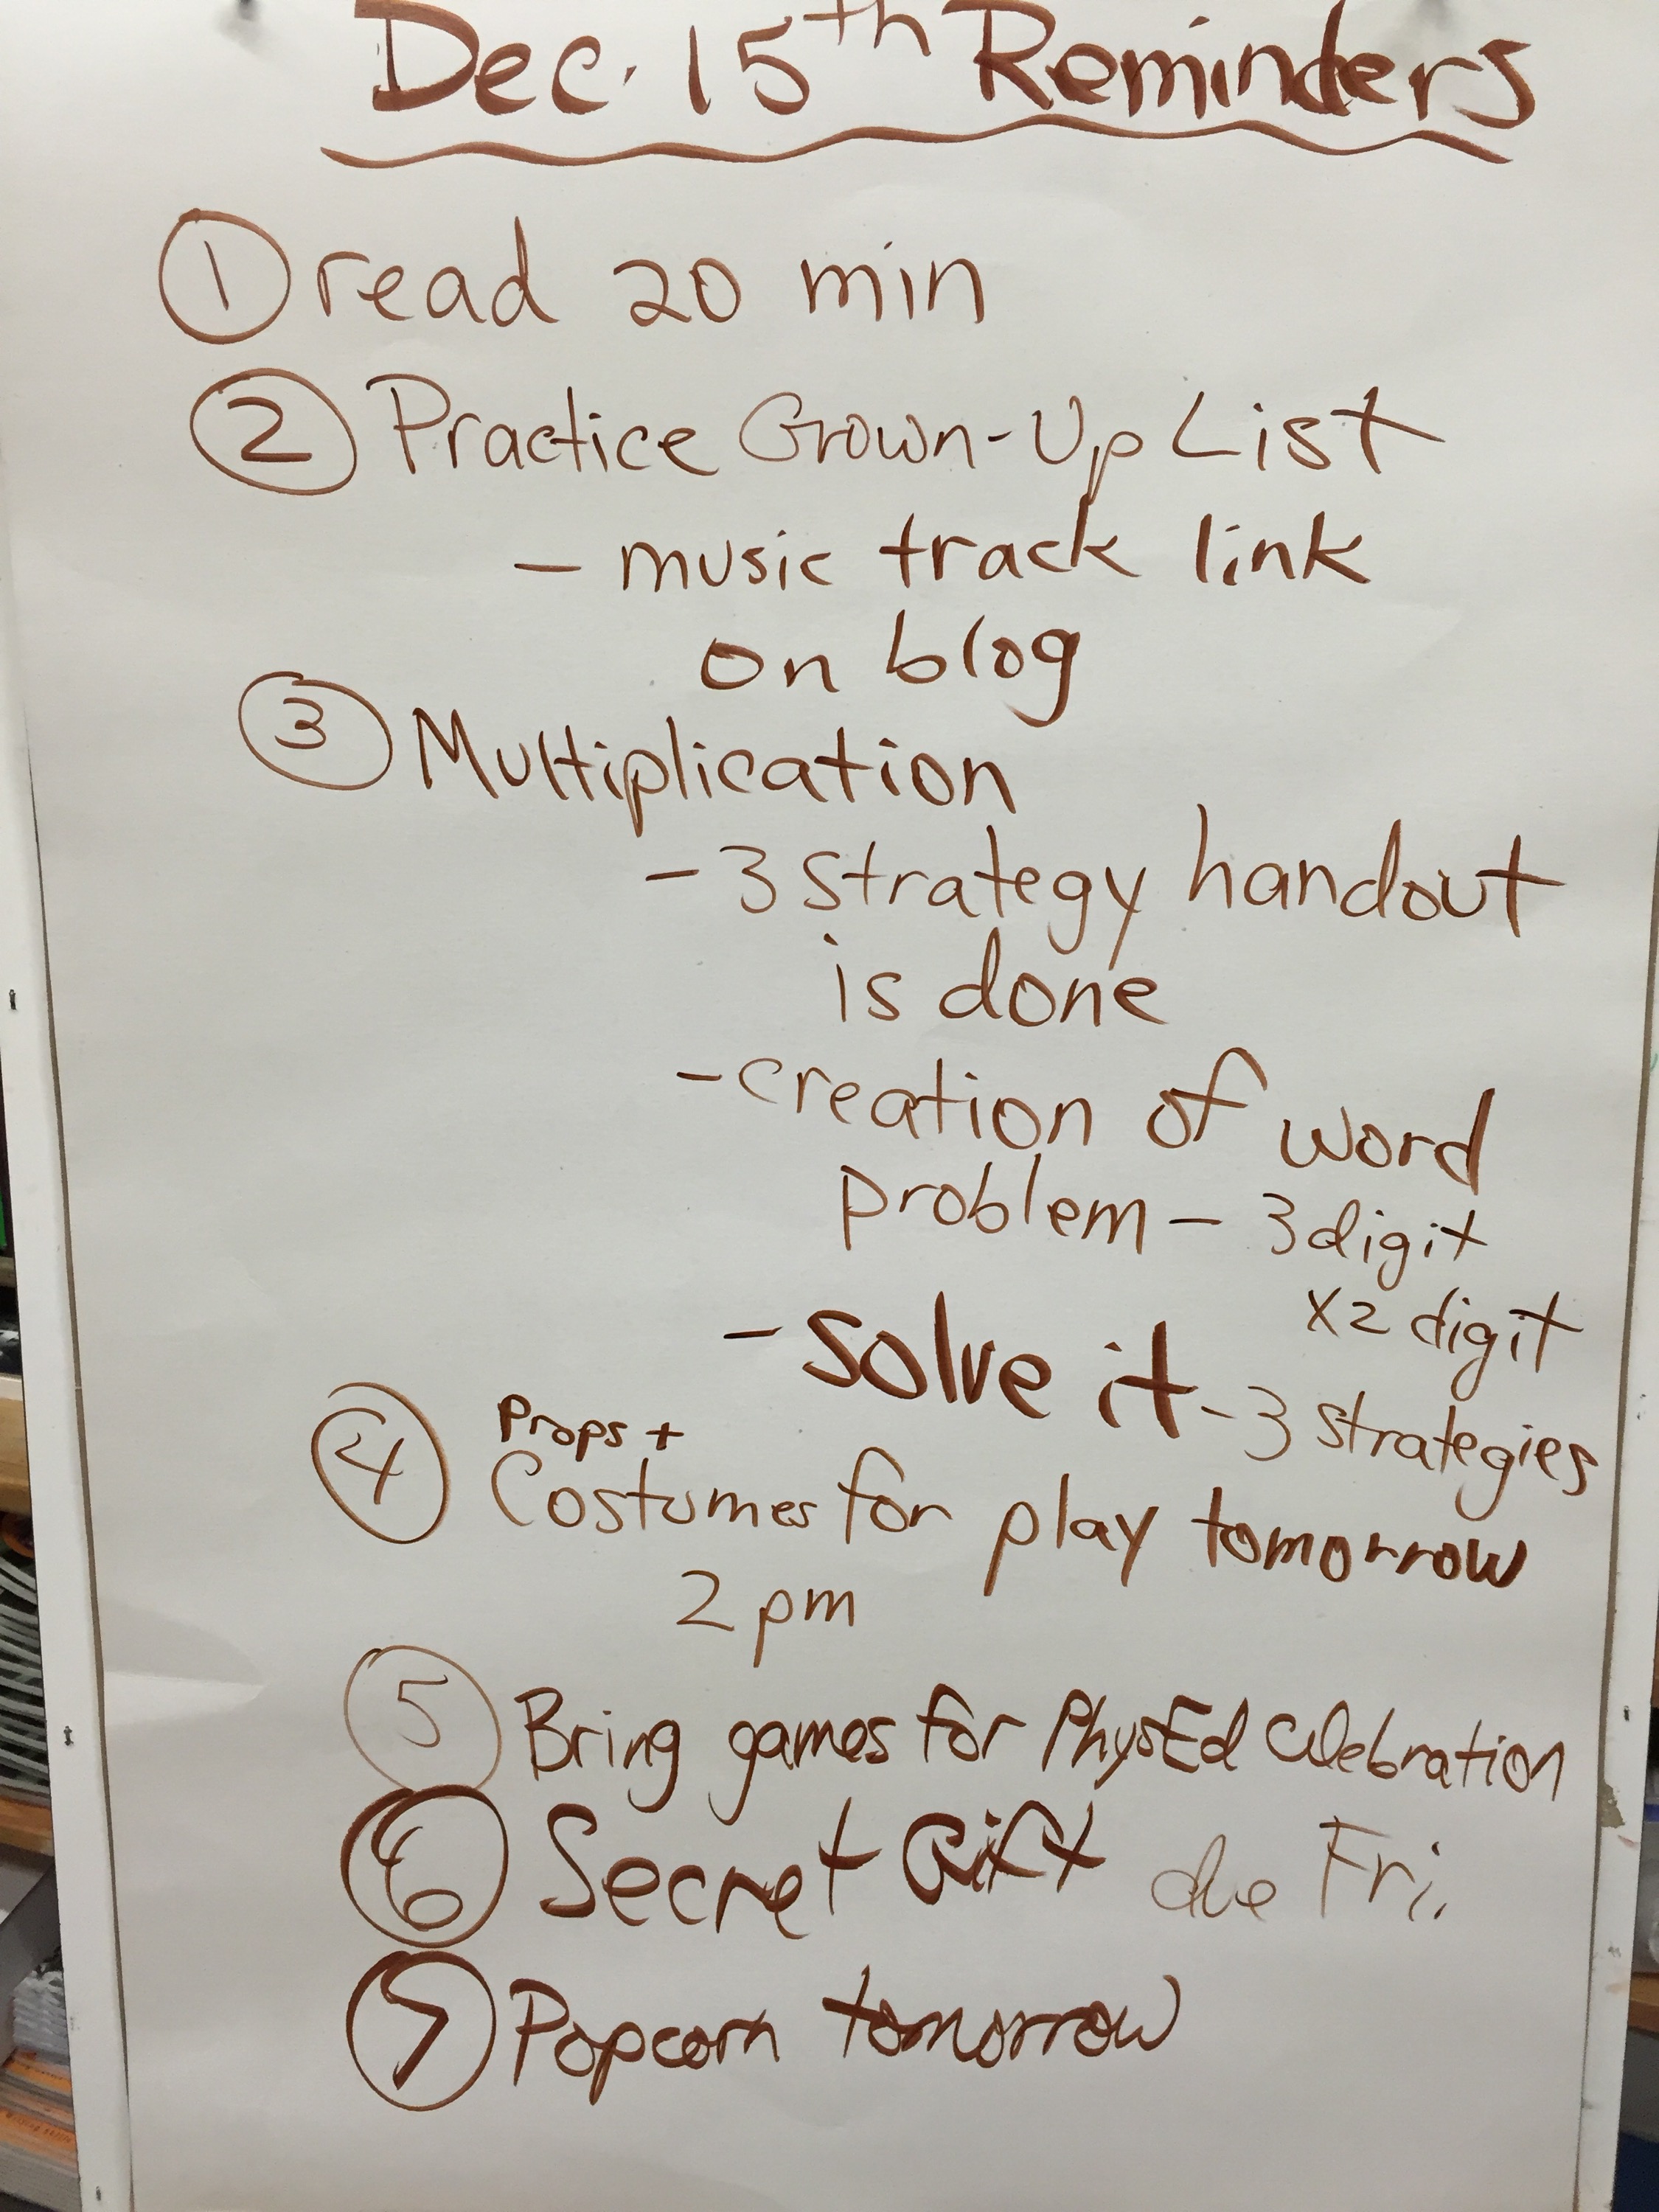 Dec. 15th Reminders
① read 20 min
② Practice Grown-Up List
- music track link
on blog
③ Multiplication
- 3 strategy handout
is done
- creation of word
problem - 3 digit
x2 digit
- solve it - 3 strategies
④ Props +
Costumes for play tomorrow
2 pm
⑤ Bring games for PhysEd Celebration
⑥ Secret Gift due Fri.
⑦ Popcorn tomorrow